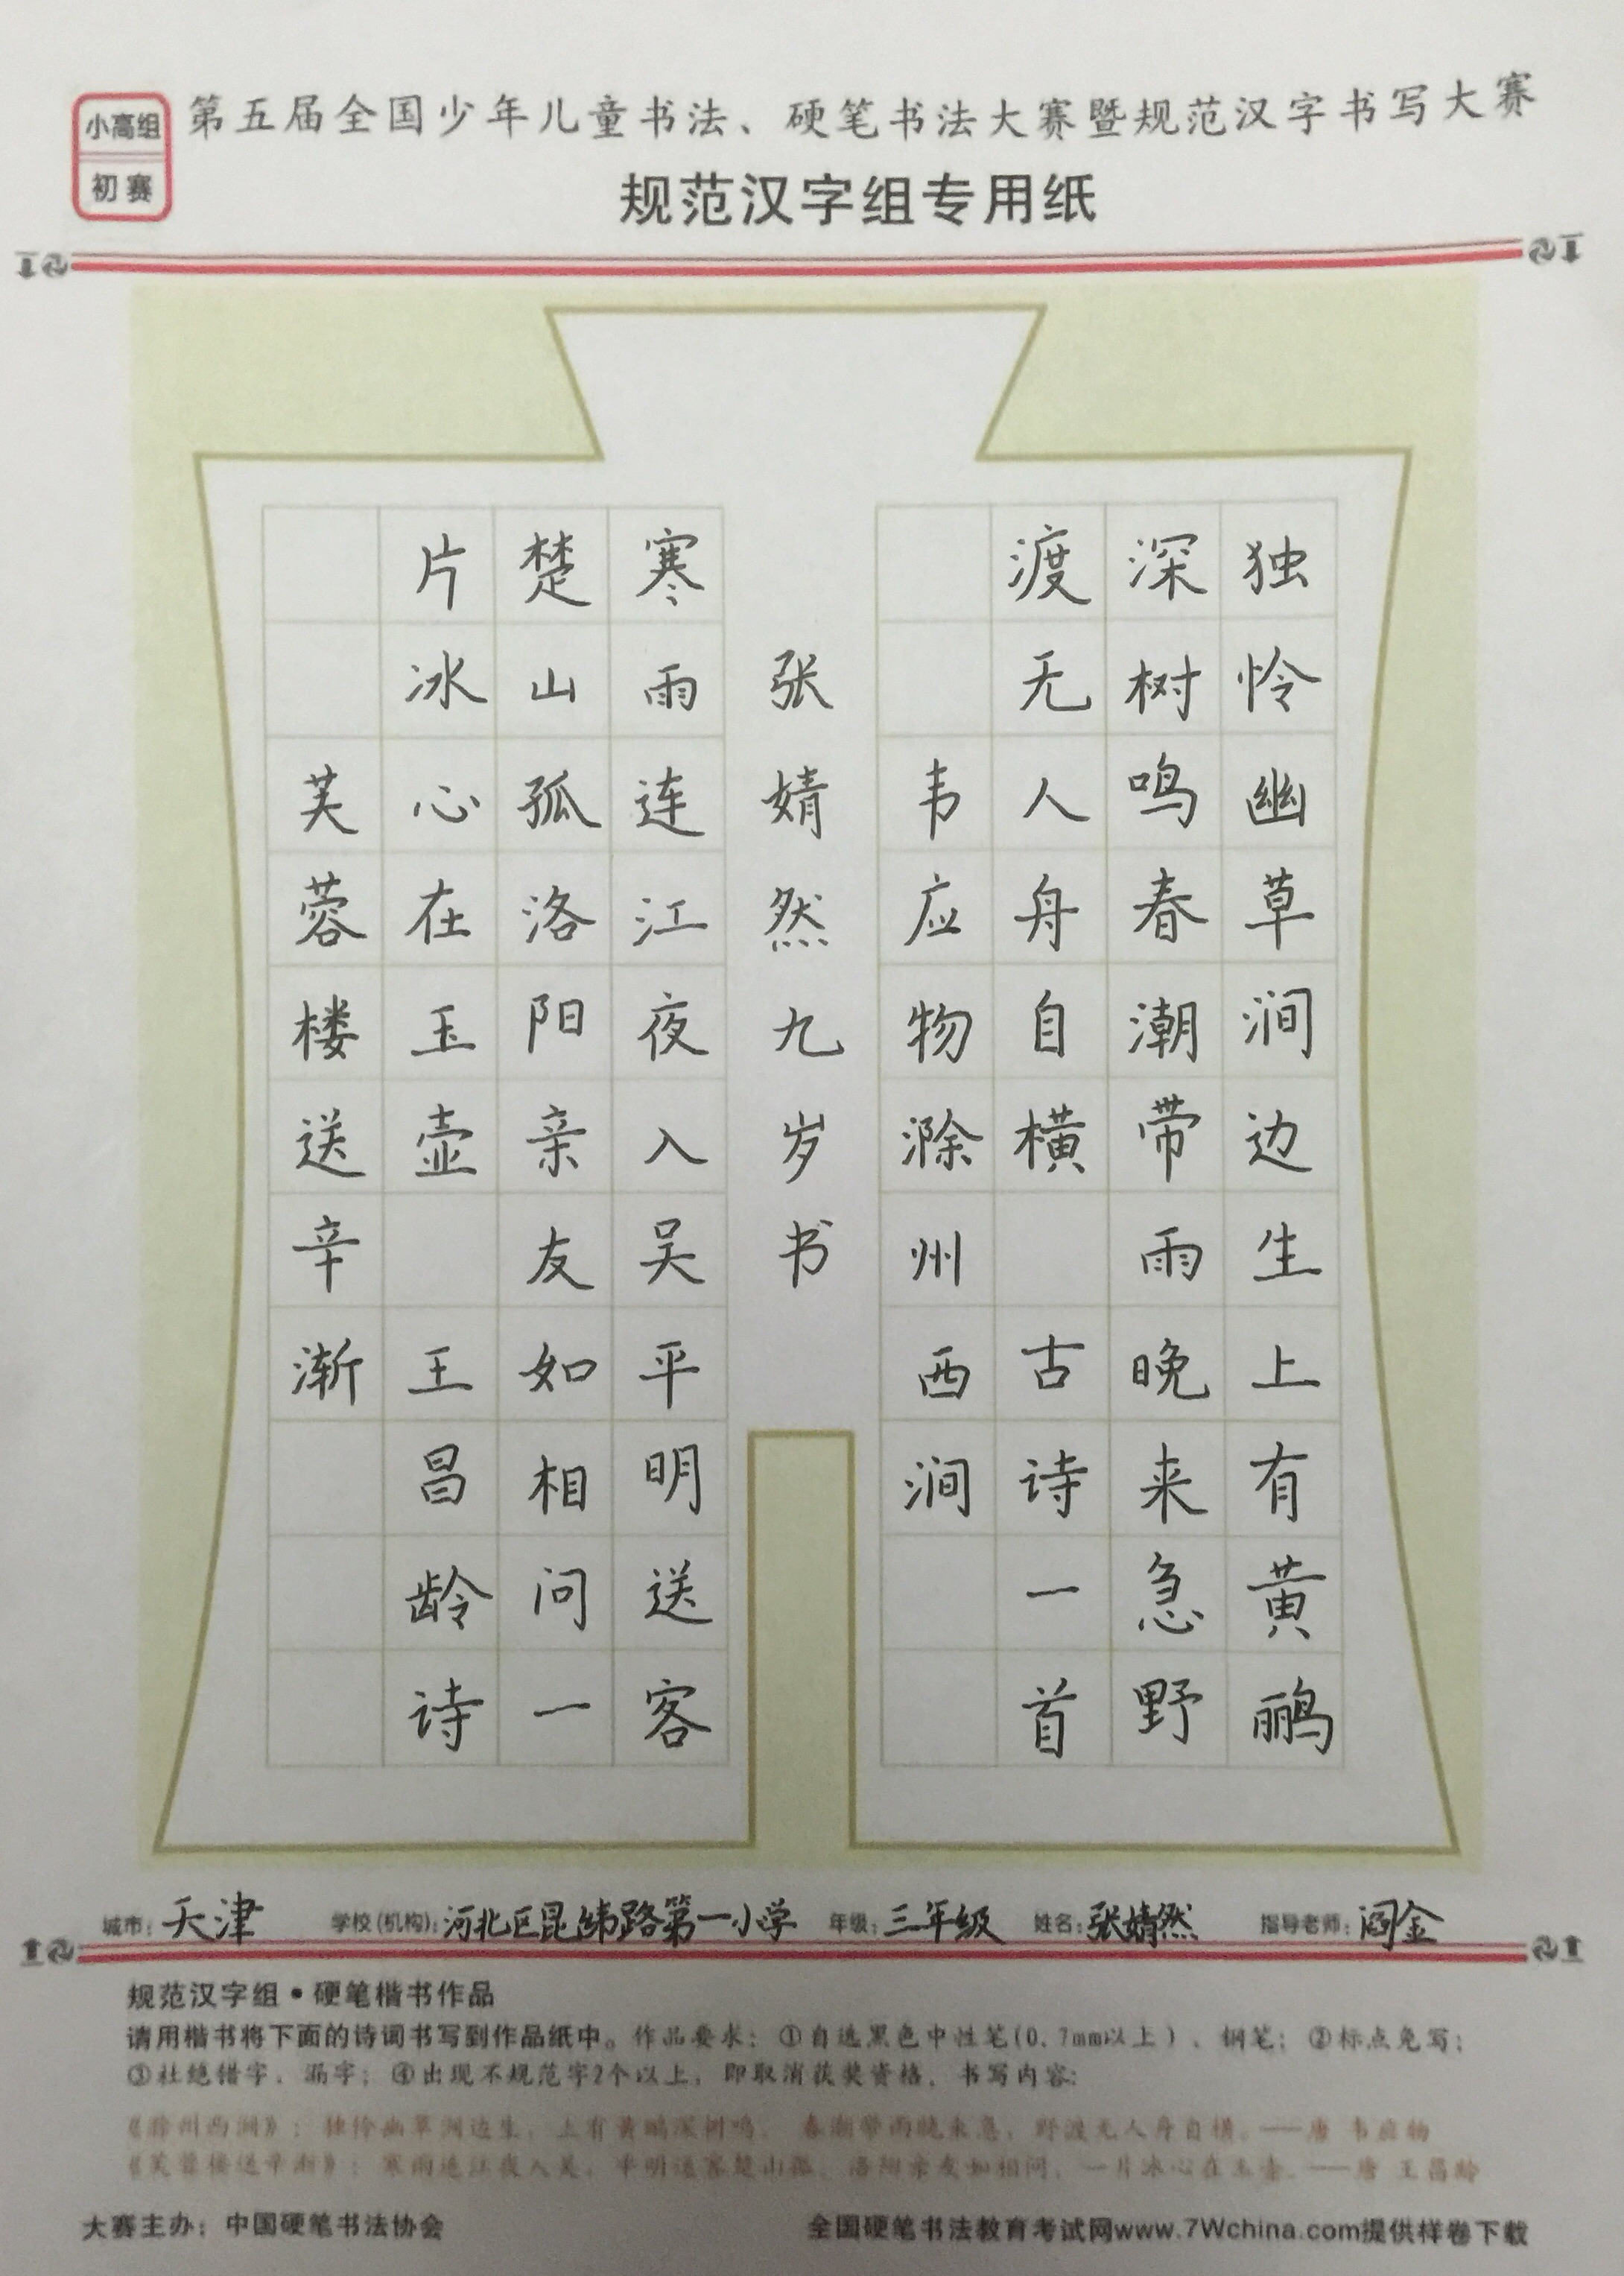 小高组
初赛
第五届全国少年儿童书法、硬笔书法大赛暨规范汉字书写大赛
规范汉字组专用纸
独怜幽草涧边生上有黄鹂
深树鸣春潮带雨晚来急野
渡无人舟自横 古诗一首
韦应物滁州西涧
张婧然九岁书
寒雨连江夜入吴平明送客
楚山孤洛阳亲友如相问一
片冰心在玉壶 王昌龄诗
芙蓉楼送辛渐
城市：天津 学校(机构)：河北区昆纬路第一小学 年级：三年级 姓名：张婧然 指导老师：阎金
规范汉字组•硬笔楷书作品
请用楷书将下面的诗词书写到作品纸中。作品要求：①自选黑色中性笔(0.7mm以上)、钢笔；②标点免写；
③杜绝错字、漏字；④出现不规范字2个以上，即取消获奖资格。书写内容：
《滁州西涧》：独怜幽草涧边生，上有黄鹂深树鸣。 春潮带雨晚来急，野渡无人舟自横。——唐 韦应物
《芙蓉楼送辛渐》：寒雨连江夜入吴，平明送客楚山孤。洛阳亲友如相问，一片冰心在玉壶。——唐 王昌龄
大赛主办：中国硬笔书法协会 全国硬笔书法教育考试网www.7Wchina.com提供样卷下载